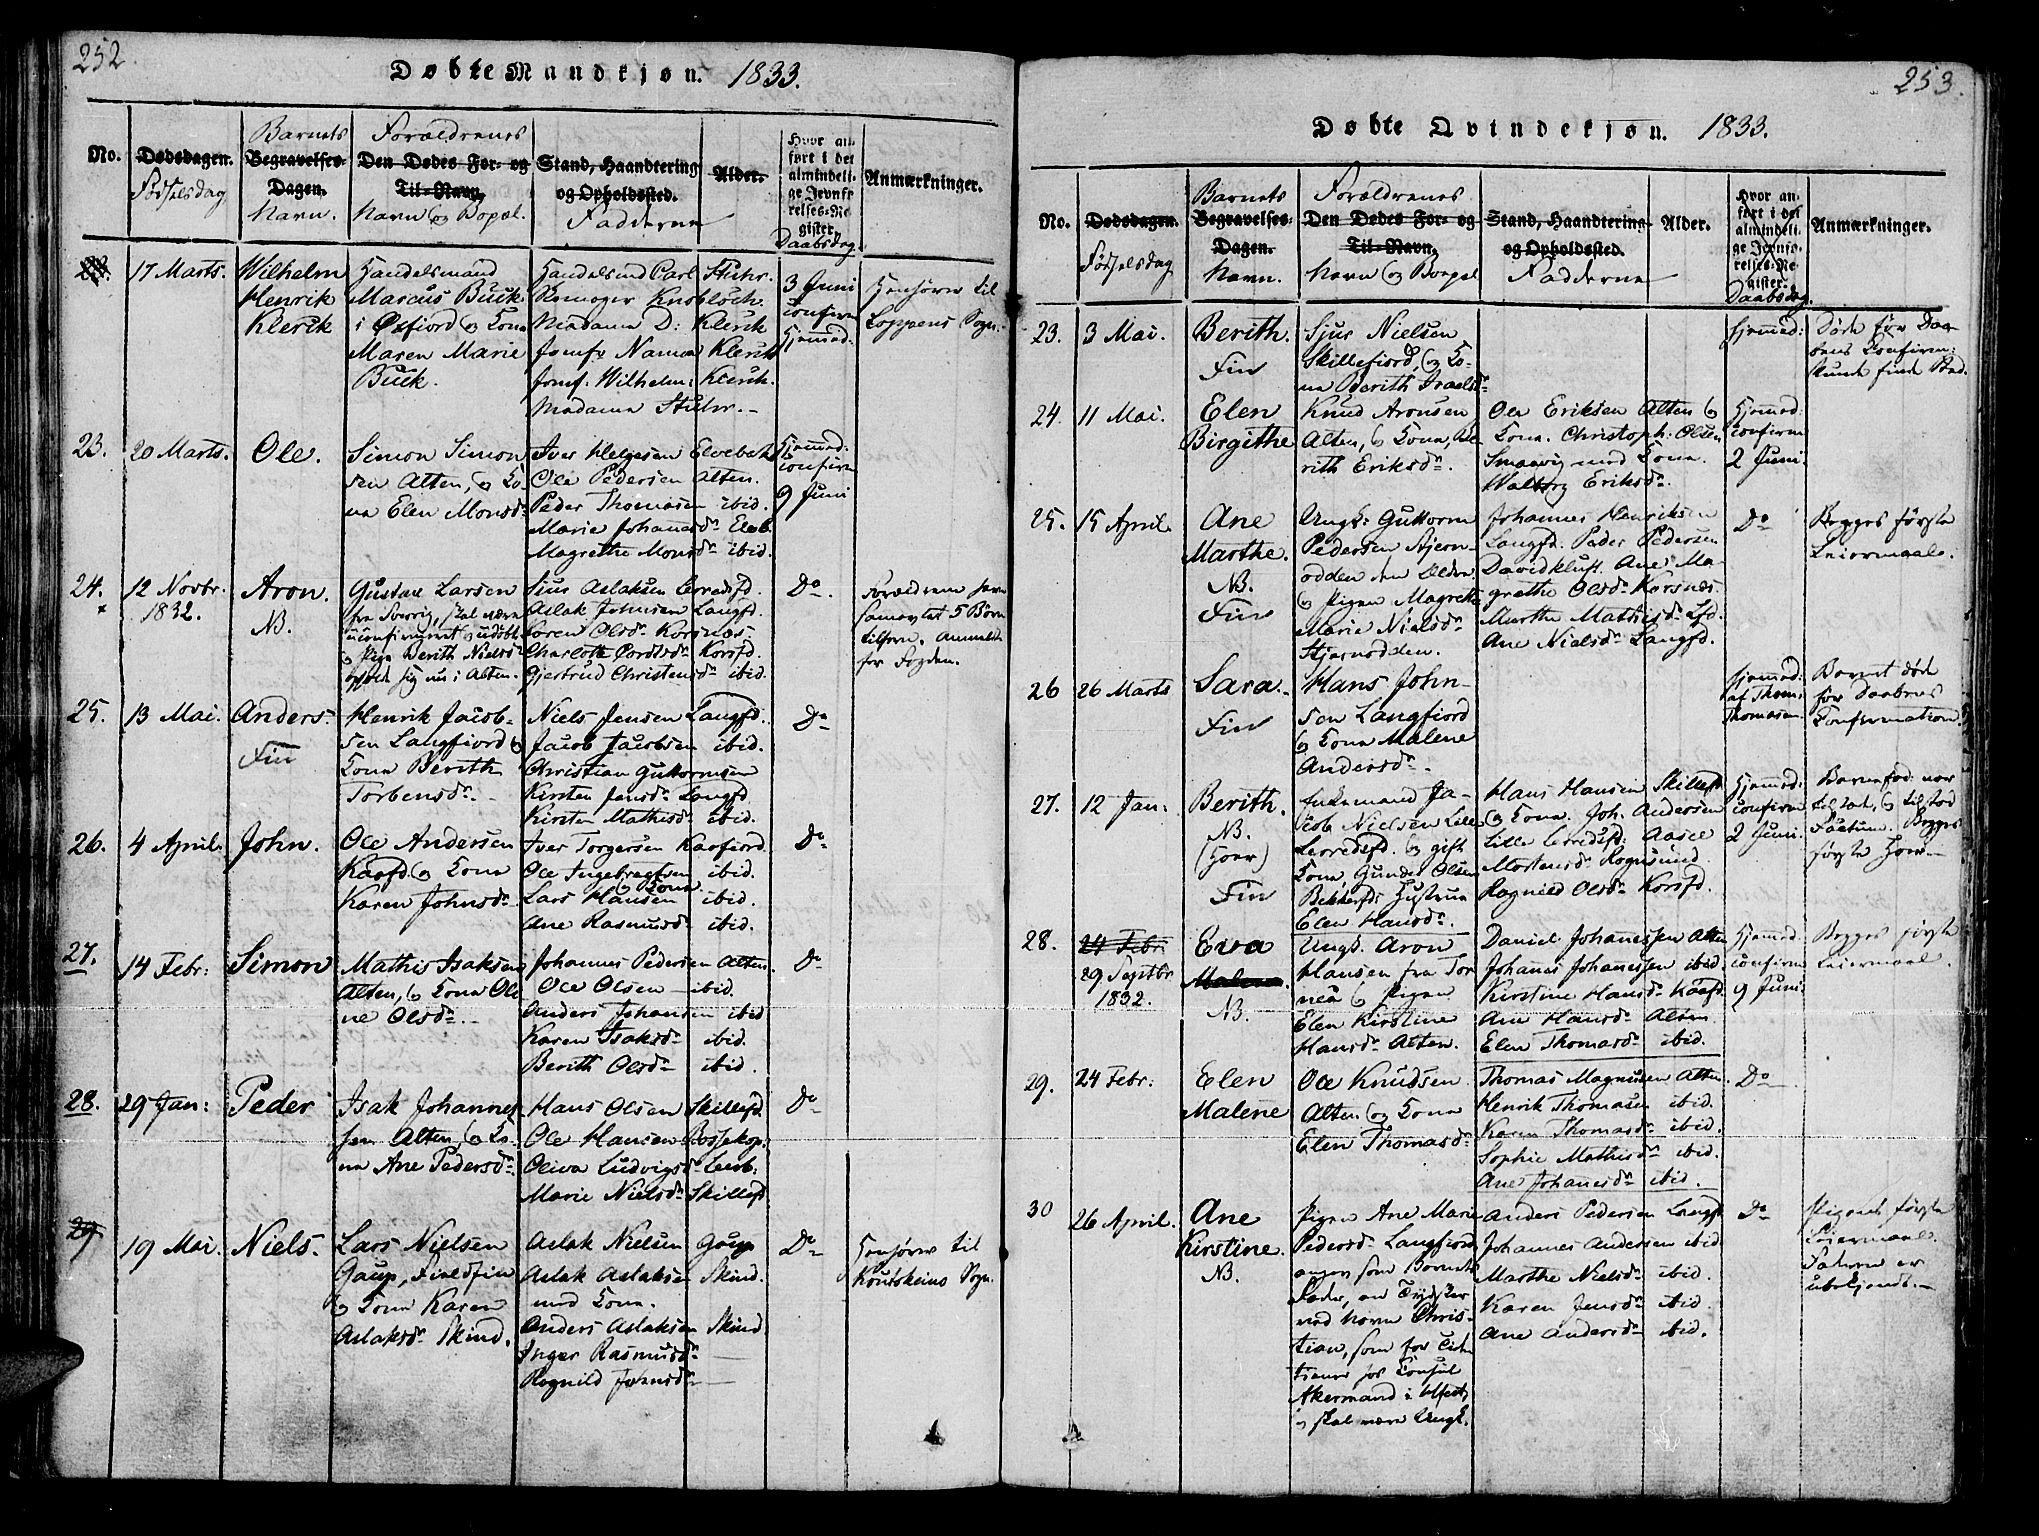 252.
Døbte Mandkjøn. 1833.
No.
Dødsdagen.
Fødselsdag
Barnets
Begravelses-
Dagen.
Navn.
Forældrenes
Den Dødes For- og
Til-Navn,
Navn og Bopæl.
Stand, Haandtering
og Opholdssted.
Fadderne
Alder.
Hvor an-
ført i det
almindeli-
ge Jevnfø-
relses-Re-
gister
Daabsdag.
Anmærkninger.
17 Marts.
Wilhelm
Henrik
Klerck
Handelsmand
Marcus Buck
i Øxfiord og Kona
Maren Marie
Buck.
Handelsmd Carl Stuhr.
Remoger Knobloch.
Madame D: Klerck
Jomfr Nanna Klerck
Jomf: Wilhelm: Klerck.
Madame Stuhr.
3 Juni
confirm
Hjemed.
Henhører til
Loppens Sogn.
23.
20 Marts.
Ole.
Simon Simon
sen Alten, og Ko-
na Elen Monsdr
Iver Helgesen Elvebak
Ole Pedersen Alten.
Peder Thomasen ibid.
Marie Johansdr Elvb.
Magrethe Monsdr ibid.
Hjemed:
confirm
9 Juni
24.
12 Novbr.
1832.
Aron.
NB.
Gustav Larsen
fra Sverrig, skal være
uconfirmeret og udøbt
og Pige Berith Nielsdr
opholde sig nu i Alten.
Siur Aslaksen Lerredsfd.
Aslak Johnsen Langfd.
Soren Olsdr Korsnæs.
Charlotte Pordlsdr Korsfd.
Gjertrud Christensdr ibid.
Do.
Forældrene have
sammen avlet 5 Børn
tilforn. Anmeldt
for Fogden.
25.
13 Mai.
Anders.
Fin
Henrik Jacob-
sen Langfiord og
Kona Berith
Torbensdr.
Niels Jensen Langfd.
Jacob Jacobsen ibid.
Christian Guttormsen
Kirsten Jensdr Langfd
Kirsten Mathisdr ibid.
Do
26.
4 April.
John.
Ole Andersen
Kaafd. og Kona
Karen Johnsdr
Iver Torgersen Kaafiord
Ole Ingebregtsen ibid.
Lars Hansen og Kona ibid.
Ane Rasmusdr ibid.
Do
27.
14 Febr:
Simon
Mathis Isaksen
Alten, og Kona Ole
ne Olsdr.
Johannes Pedersen Alten.
Ole Olsen ibid.
Anders Johansen ibid
Karen Isaksdr ibid.
Berith Olsdr ibid.
Do
28.
29 Jan:
Peder
Isak Johannes
sen Alten, og Ko-
na Ane Pedersdr.
Hans Olsen Skillefd.
Ole Hansen Bossekop.
Oliva Ludvigsdr Lerb.
Marie Nielsdr Skillefd.
Do
29
19 Mai.
Niels.
Lars Nielsen
Gaup, Fieldfin
og Kona Karen
Aslaksdr Skind.
Aslak Nielsen Gaup
Aslak Aslaksen Skind.
med Kona.
Anders Aslaksen Skind
Inger Rasmusdr
Ragnild Johnsdr
Do
Henhører til
Koutokeino Sogn.
253.
Døbte Qvindekjøn. 1833.
No.
Dødsdagen.
Fødselsdag
Barnets
Begravelses-
Dagen.
Navn.
Forældrenes
Den Dødes For- og
Til-Navn,
Navn og Bopæl
Stand, Haandtering
og Opholdssted.
Fadderne
Alder.
Hvor an-
ført i det
almindeli-
ge Jevnfø-
relses-Re-
gister.
Daabsdag.
Anmærkninger.
23.
3 Mai.
Berith.
Fin
Sjur Nielsen
Skillefiord, og Ko-
na Berith Israelsdr
Hjemed:
Døde før Daa-
bens Confirm:
kunde finde Sted.
24.
11 Mai.
Elen
Birgithe
Knud Aronsen
Alten, og Kona, Be
rith Eriksdr.
Ole Eriksen Alten og
Kona. Christoph: Olsen
Smaavig med Kona.
Walborg Eriksdr.
Hjemed:
confirm
2 Juni.
25.
15 April.
Ane
Marthe.
NB.
Fin
Ungk: Guttorm
Pedersen Stjern-
odden den Eldre
og Pigen Magrethe
Marie Nielsdr
Stjernodden.
Johannes Henriksen
Langfd. Peder Pedersen
Davidkluft. Ane Ma-
grethe Olsdr Korsnæs
Marthe Mathisdr Lfd.
Ane Nielsdr Langfd.
Do
Begges første
Leiermaale.
26
26 Marts
Sara.
Fin
Hans John-
sen Langfiord
og Kona Malene
Andersdr.
Hjemed:
af Thom:
Thomasen.
Barnet døde
før Daabens
Confirmation.
27.
12 Jan:
Berith.
NB.
(Hoer)
Fin
Enkemand Ja-
cob Nielsen Lille
Lerredsfd. og gift
Kona, Gunder Olsen
Bekkerfds Hustrue
Elen Hansdr.
Hans Hansen Skillefd
og Kona. Joh. Andersen
Lille Lerredsfd: Aase
Mortensdr Rognsund
Ragnild Olsdr Korsfd.
Hjemed:
confirm
2 Juni.
Barnefad: var
tilsted, og tilstod
Factum. Begges
første Hoer.
28.
24 Febr.
29 Septbr
1832.
Eva
Malene.
NB.
Ungk. Aron
Hansen fra Tor
neå og Pigen
Elen Kirstine
Hansdr Alten.
Daniel Johanessen Alten
Johanes Johanessen ibid.
Kirstine Hansdr Kaafd.
Ane Hansdr Alten
Elen Thomasdr ibid.
Hjemed:
confirm
9 Juni
Begges første
Leiermaal.
29.
24 Febr:
Elen
Malene
Ole Knudsen
Alten og Kona
Elen Thomasdr
Thomas Magnusen Alten
Henrik Thomasen ibid.
Karen Thomasdr ibid.
Sophie Mathisdr ibid.
Ane Johanesdr ibid.
Do
30
26 April.
Ane
Kirstine.
NB.
Pigen Ane Marie
Pedersdr Langfiord
angav som Barnets
Fader, en Tydsker
ved Navn Chris-
tian, som for
tiener hos Consul
Akermand i
og skal være Ungk.
Anders Pedersen Langfd
Johannes Andersen ibid
Marthe Nielsdr ibid.
Karen Jensdr ibid.
Ane Andersdr ibid.
Do
Pigens første
Leiermaal.
Faderen er
ubekjendt.